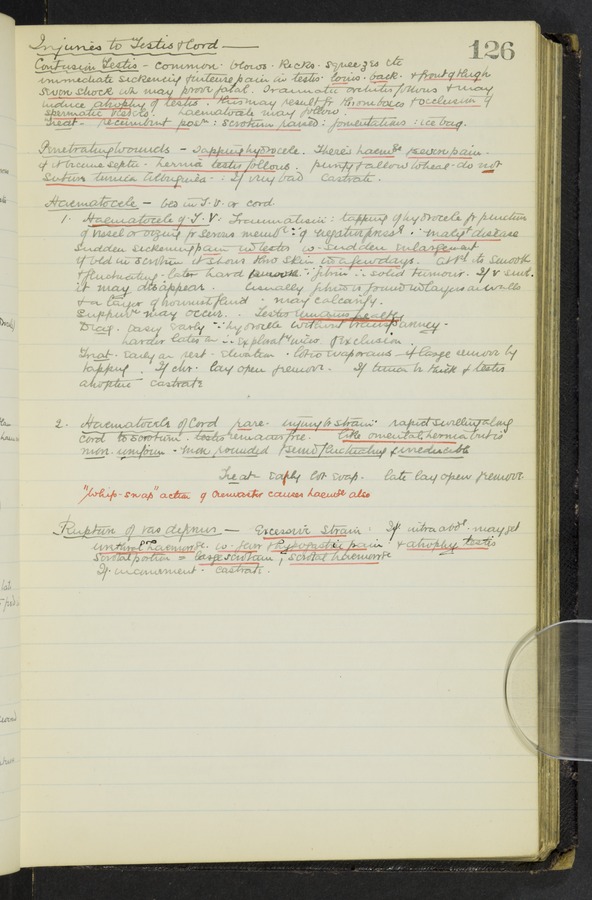 Injuries to Testis & Cord —
126
Contusion Testis - Common. blows. kicks. squeezes etc
immediate sickening & intense pain in testis. loins. back. & front of thigh
Severe shock wh may prove fatal. Traumatic orchitis follows & may
induce atrophy of testis. this may result fr thrombosis & occlusion of
spermatic vessels. haematocele may follow.
Treat - recumbent posn : scrotum raised : fomentations : ice bag.
Penetrating wounds - tapping hydrocele. There's haemge severe pain.
if it become septic. hernia testis follows. purify & allow to heal - do not
suture tunica albuginea. : If very bad castrate.
Haematocele - bld in T.V. or cord
1. Haematocele of T.V. Traumatism : tapping of hydrocele fr puncture
of vessel or oozing fr serous membe of negative press : maligt disease
Sudden sickening pain in testes w. sudden enlargement
of bld in scrotum it shows thro skin in a few days. At 1st its smooth
& fluctuating. later hard solid tumour. If v small
it may disappear. Usually found in layers on walls
& a layer of fluid. may calcify.
Suppurn may occur. Testis remains healthy
Diag. easy early hydrocele without translucency.
harder later on exploraty incis. & exclusion
Treat. early on rest. elevation. lotio evaporans - if large remove by
tapping. If chr. lay open & remove. If tunica be thick & testis
atrophic castrate
2. Haematocele of Cord rare. injury to strain : rapid swelling along
cord to scrotum. testis remains free. like omental hernia but is
more uniform. more rounded & semi fluctuating & irreducible
Treat early lot evap. late lay open & remove.
"Whip-snap" action of cremaster causes haemge also
Rupture of vas deferens — Excessive strain : If intra abdl. may get
urethral haemorrge. w. fever & hypogastric pain & atrophy testis
Scrotal portion = large scrotum, scrotal haemorrge
If inconvenient. castrate.